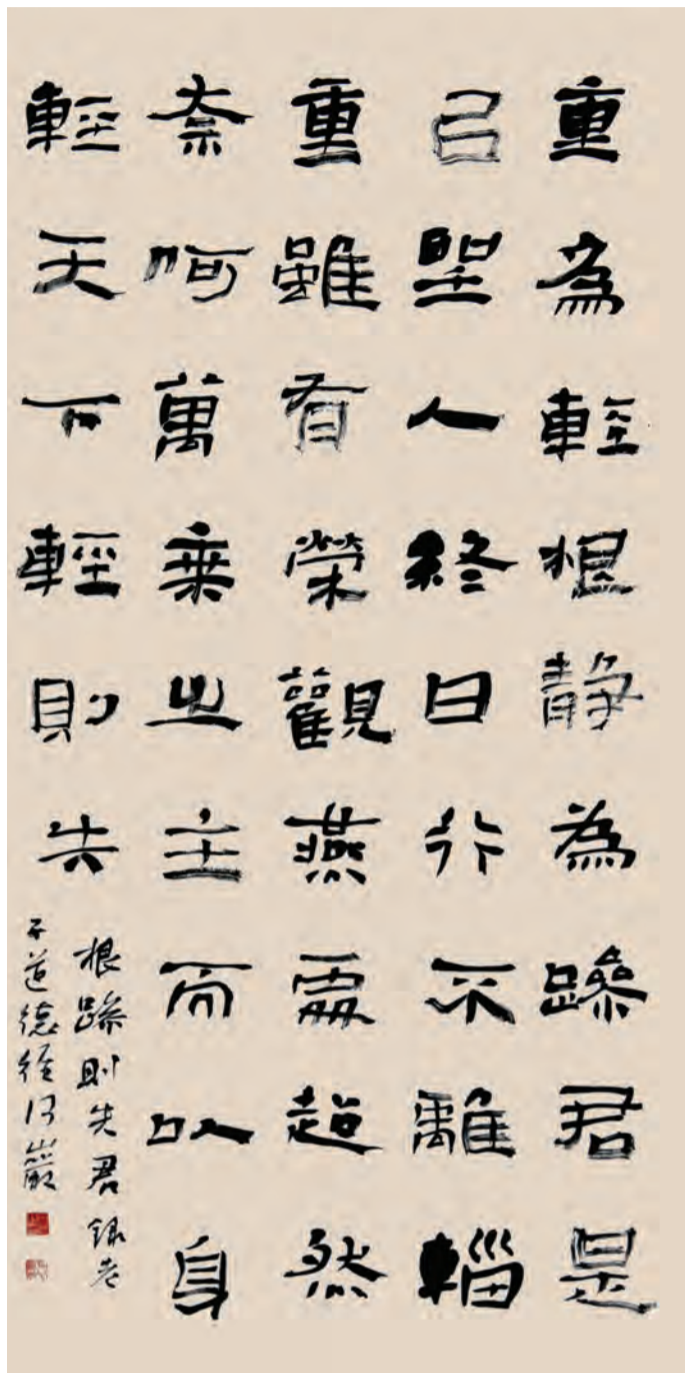 重為輕根静為躁君是
㠯聖人終日行不離輜
重雖有榮觀燕處超然
柰呵萬乘之主而以身
輕天下輕則失
根躁則失君録老
子道德經巖